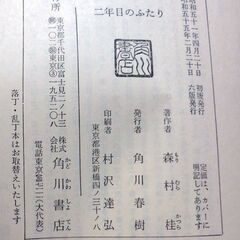 二年目のふたり
昭和五十一年四月二十日 初版発行
昭和五十五年二月二十日 六版発行
定価は、カバーに
明記してあります
著作者 森村桂
もり むら かつら
発行者 角川春樹
印刷者 村沢達弘
東京都港区新橋四ノ三十ノ八
発行所
株式会社 角川書店
かど かわ
東京都千代田区富士見二ノ十三
振替東京③一九五二〇八
電話東京
(大代表)
落丁・乱丁本はお取替えいたします